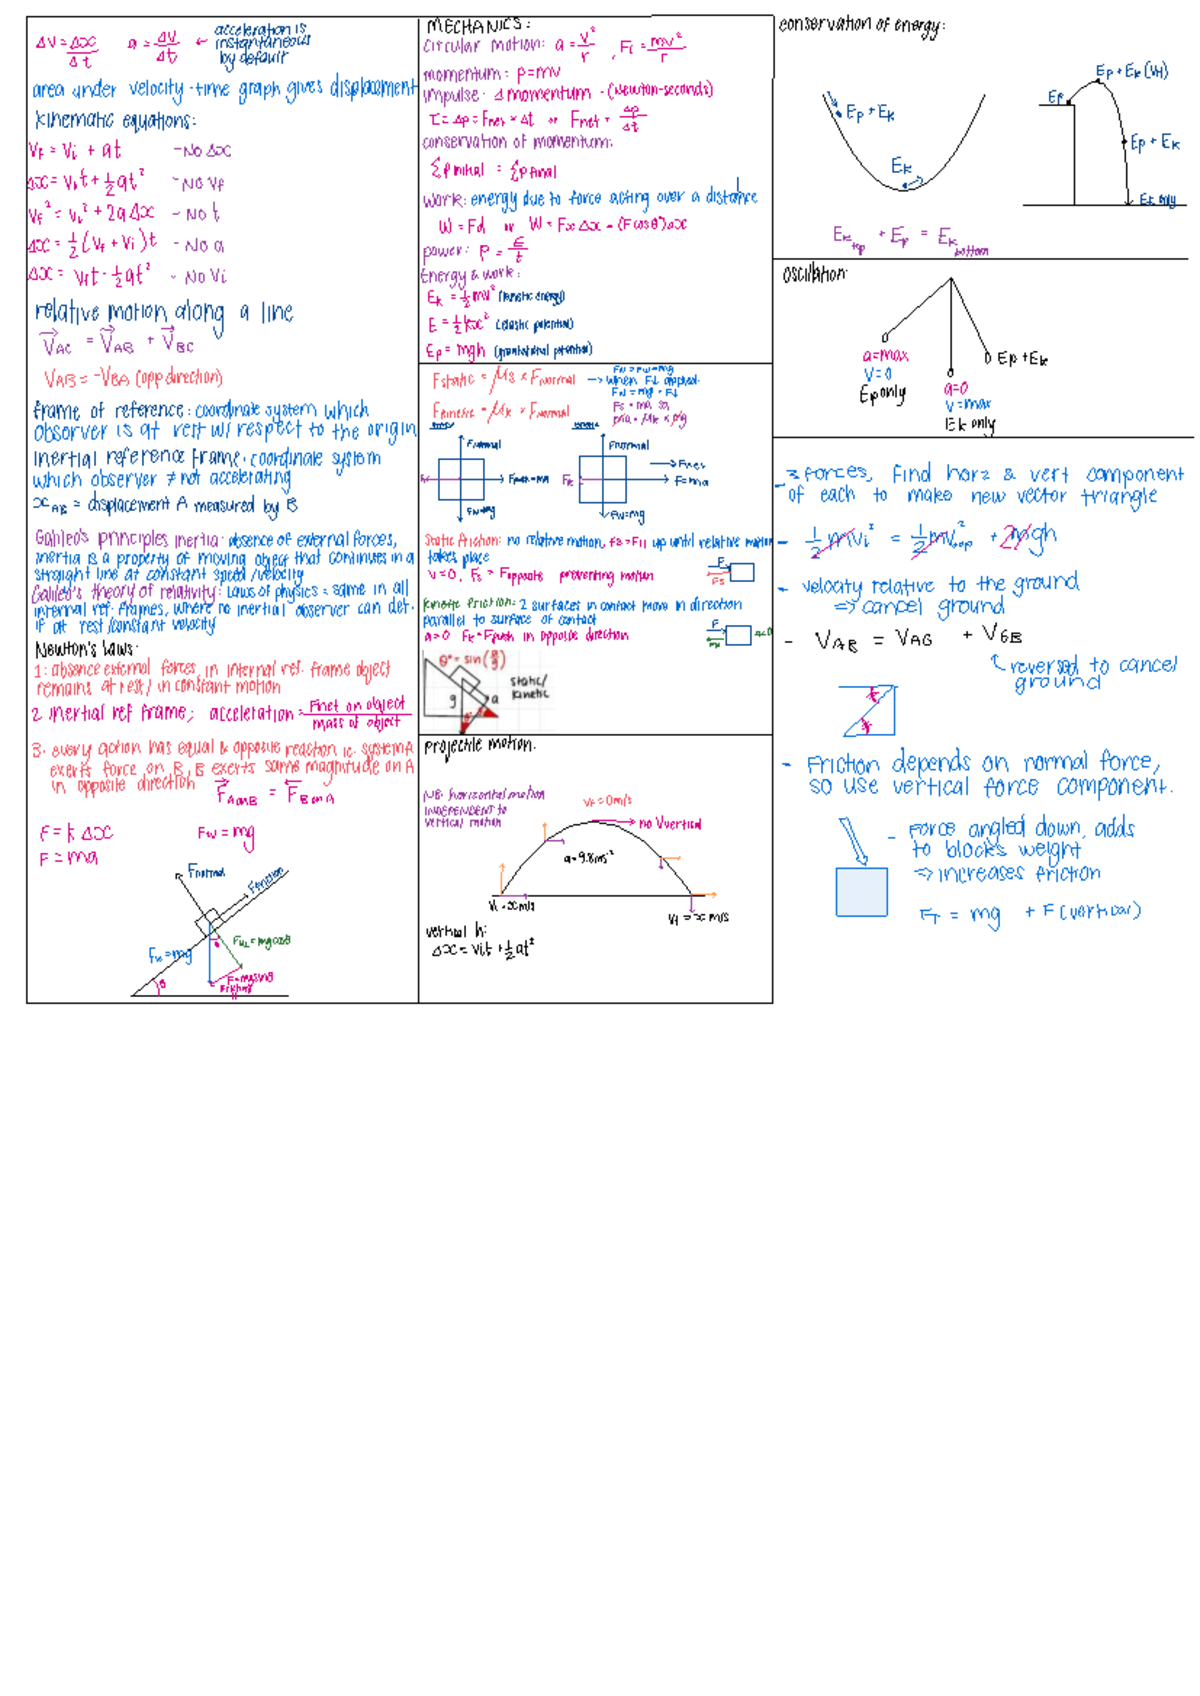 ΔV = Δx/Δt   a = ΔV/Δt ← acceleration is instantaneous by default
area under velocity-time graph gives displacement
kinematic equations:
Vf = Vi + at - NO Δx
Δx = Vit + ½at² - NO Vf
Vf² = Vi² + 2aΔx - NO t
Δx = ½(Vf + Vi)t - NO a
Δx = Vft - ½at² - NO Vi
relative motion along a line
V⃗AC = V⃗AB + V⃗BC
VAB = -VBA (opp direction)
frame of reference: coordinate system which
observer is at rest w/ respect to the origin
inertial reference frame: coordinate system
which observer ≠ not accelerating
xAB = displacement A measured by B
Galileo's principles inertia: absence of external forces,
inertia is a property of moving object that continues in a
straight line at constant speed/velocity
Galileo's theory of relativity: Laws of physics = same in all
internal ref. frames, where no inertial observer can det.
if at rest/constant velocity
Newton's Laws:
1: absence external forces, in internal ref. frame object
remains at rest/ in constant motion
2 inertial ref frame; acceleration = Fnet on object / mass of object
3: every action has equal & opposite reaction i.e. system A
exerts force on B, B exerts same magnitude on A
in opposite direction
F⃗A on B = F⃗B on A
F = k Δx   Fw = mg
F = ma
Fnormal
Friction
Fw = mg
θ
MECHANICS:
circular motion: a = v²/r , Fc = mv²/r
momentum: p = mv
impulse - Δ momentum - (Newton-seconds)
I = Δp = Fnet × Δt or Fnet = Δp/Δt
conservation of momentum:
Σp initial = Σp final
work: energy due to force acting over a distance
W = Fd or W = FxΔx = (F cosθ)Δx
power: P = E/t
Energy & work:
Ek = ½mv² (kinetic energy)
E = ½kx² (elastic potential)
Ep = mgh (gravitational potential)
Fstatic = μs × Fnormal
Fkinetic = μk × Fnormal
→ when F↓ applied
Fnormal
Fw=mg
Fnormal
Fnet
F=ma
Fk
Fw=mg
Static friction: no relative motion, Fs = F11 up until relative motion
takes place
V=0, Fs = Fopposite preventing motion
F
Fs
kinetic friction: 2 surfaces in contact move in direction
parallel to surface of contact
a=0 Fk = Fpush in opposite direction
F
Fk
a=0
g
a
static/
kinetic
projectile motion:
NB: horizontal motion
INDEPENDENT to
vertical motion
Vf = 0m/s
no Vvertical
a=9.8ms⁻²
Vi = x m/s
Vf = x m/s
vertical h:
Δx = Vit + ½at²
conservation of energy:
Ep + Ek
Ek
Ep
Ep + Ek (VH)
Ep + Ek
Ek only
Ektop + Ep = Ekbottom
oscillation:
a=max
V=0
Ep only
Ep + Ek
a=0
V=max
Ek only
- 3 forces, find horz & vert component
of each to make new vector triangle
- ½mVi² = ½mV²top + 2mgh
- velocity relative to the ground
=> cancel ground
- VAB = VAG + VGB
reversed to cancel
ground
- Friction depends on normal force,
so use vertical force component.
- Force angled down, adds
to blocks weight
=> increases friction
FT = mg + F(vertical)